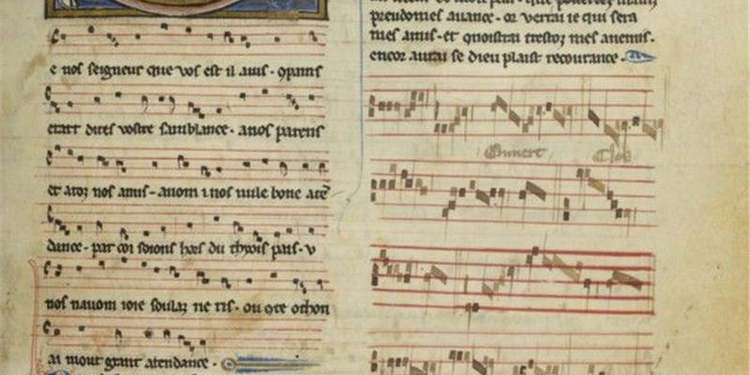 e nos seigneur que vos est il avis. 
etrait dites vostre samblance. a nos parens
et a toz nos amis. avom i nos nule bone ate
dance. par coi soions hors du thyois païs. v
nos navom ioie soulaz ne ris. ou qte othon
ai mout grant atendance.
preudomes avance. or verrai ie qui sera
mes amis. et quoistrai trestoz mes anemis.
encor aurai se dieu plaist recouvrance.